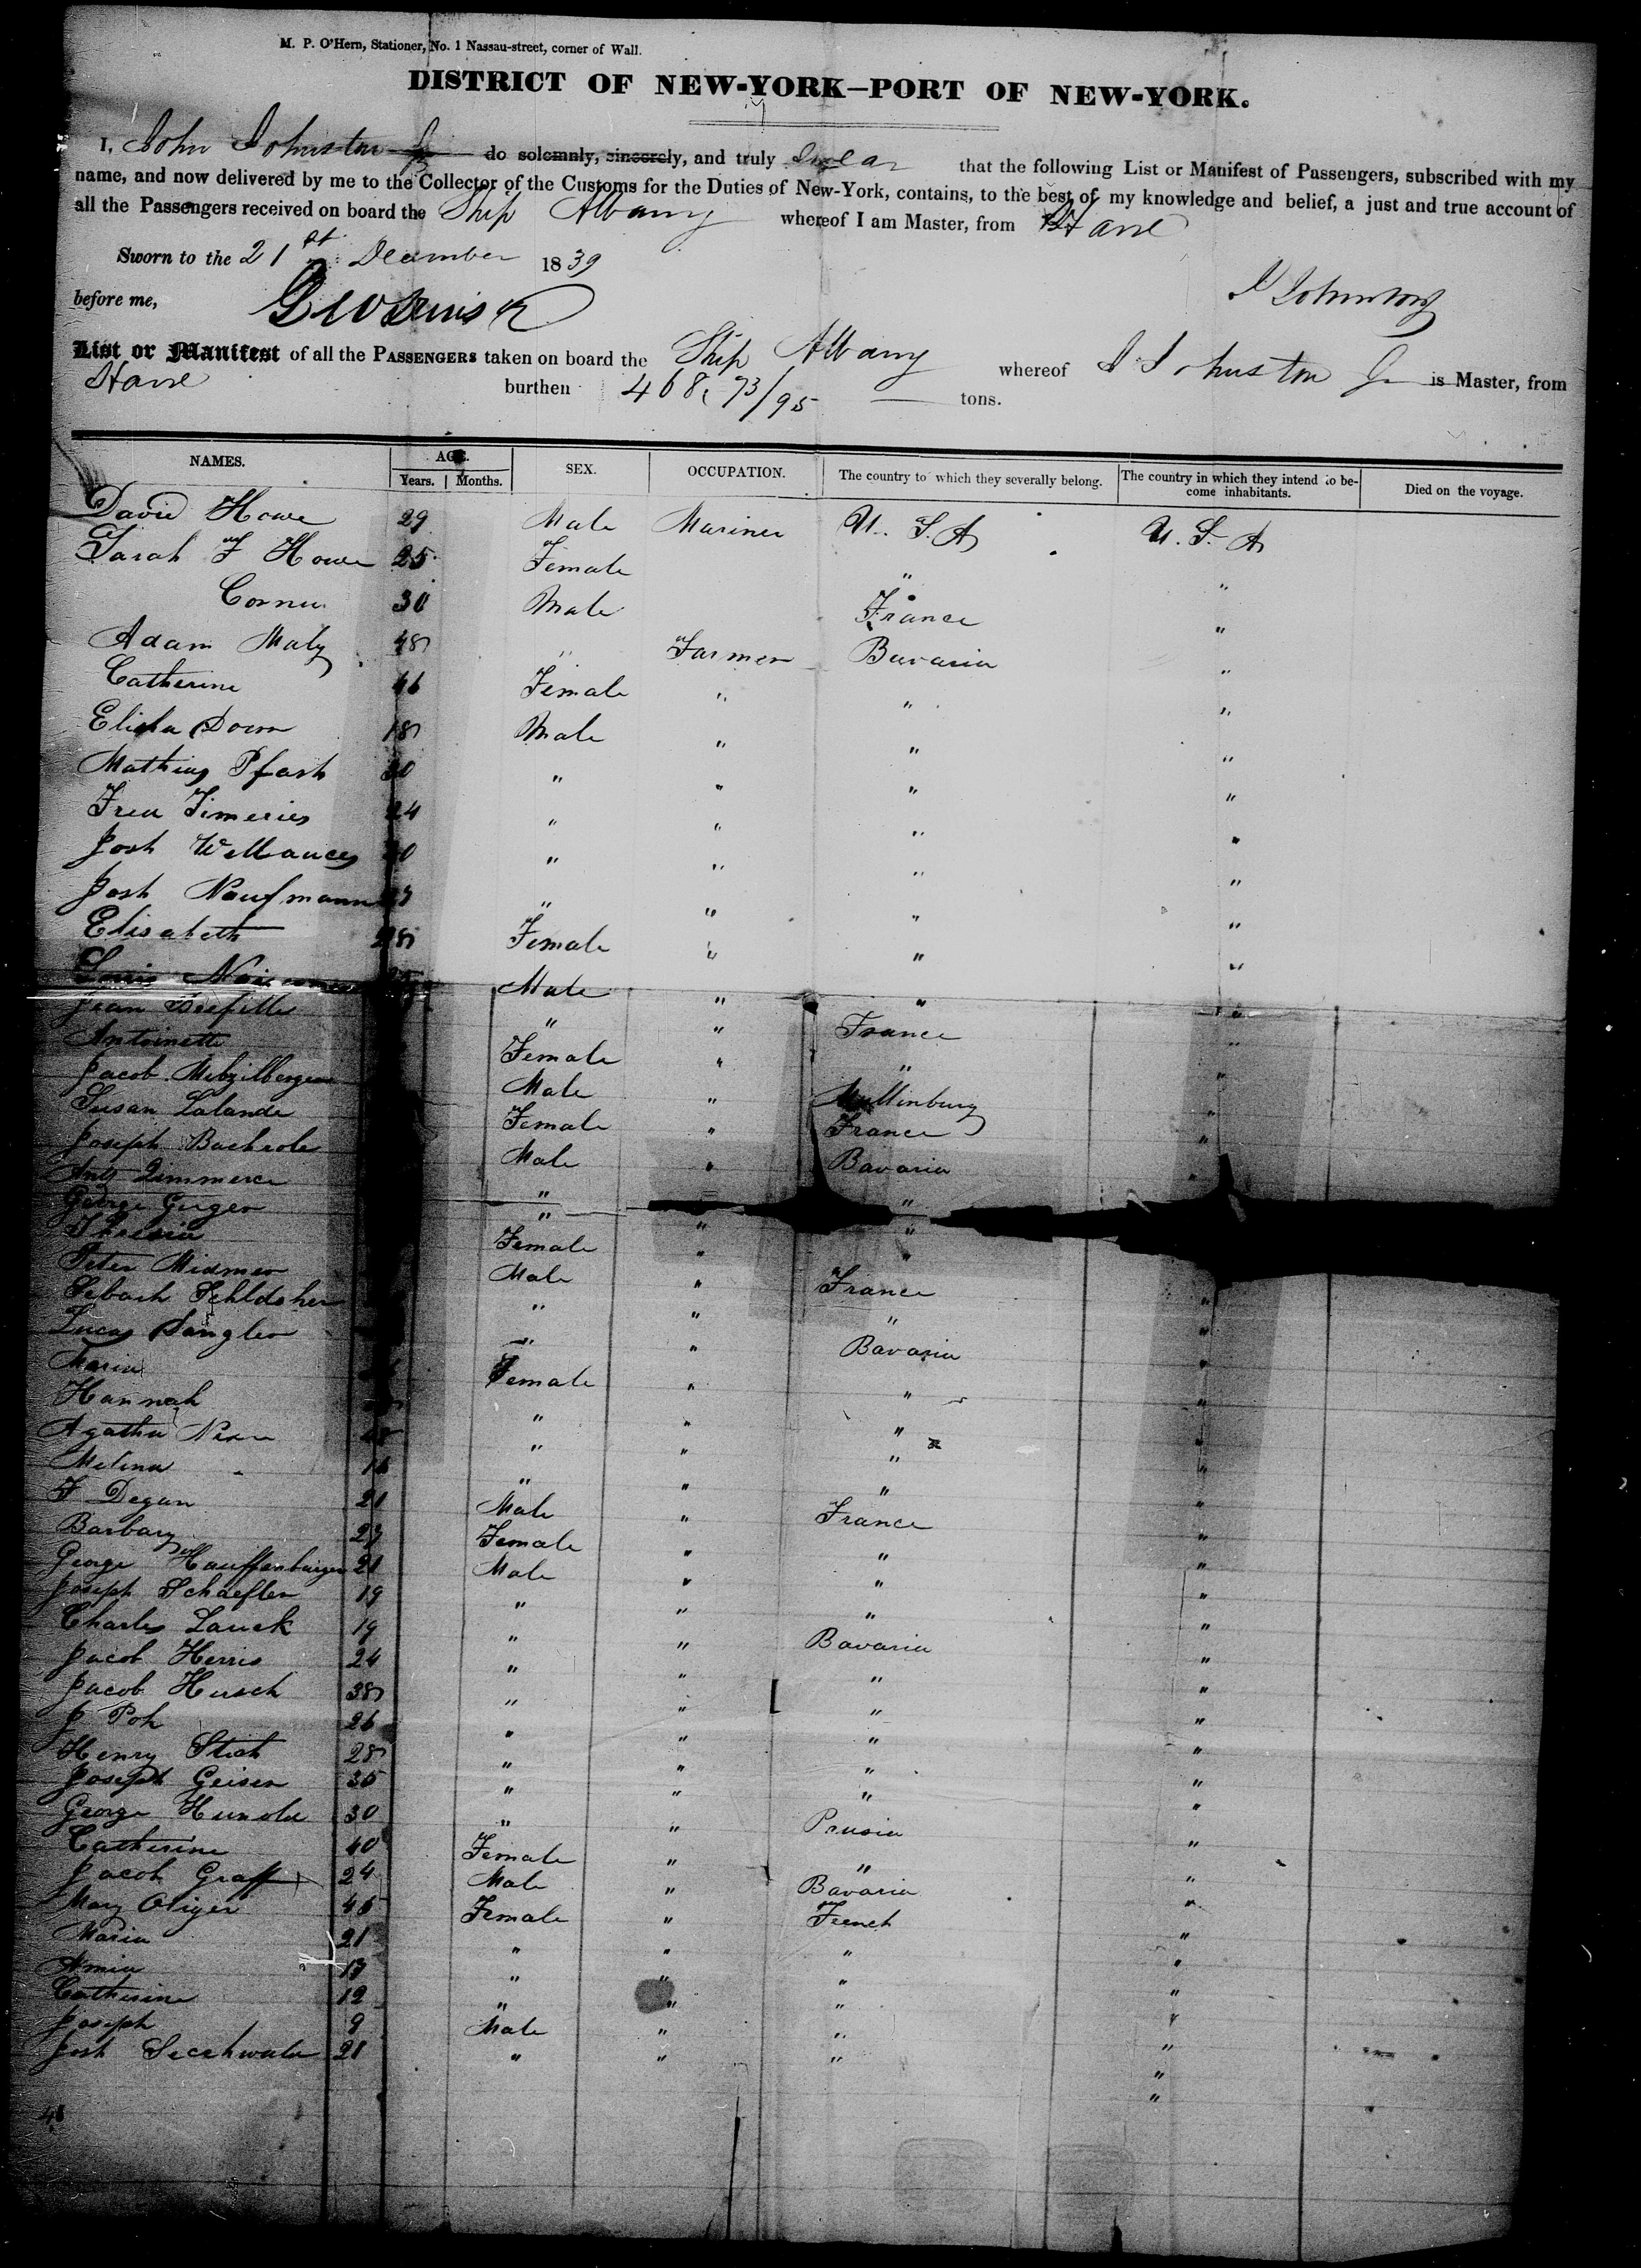 M. P. O'Hern, Stationer, No. 1 Nassau-street, corner of Wall.
DISTRICT OF NEW-YORK—PORT OF NEW-YORK.
I, John Johnston Jr do solemnly, sincerely, and truly swear that the following List or Manifest of Passengers, subscribed with my
name, and now delivered by me to the Collector of the Customs for the Duties of New-York, contains, to the best of my knowledge and belief, a just and true account of
all the Passengers received on board the Ship Albany whereof I am Master, from Havre
Sworn to the 21st December 1839
before me, J Johnston Jr
List or Manifest of all the PASSENGERS taken on board the Ship Albany whereof J Johnston Jr is Master, from
Havre burthen 468 73/95 tons.
NAMES. AGE. SEX. OCCUPATION. The country to which they severally belong. The country in which they intend to be- Died on the voyage.
Years. Months. come inhabitants.
David Howe 29 Male Mariner U. S. A U. S. A
Sarah F Howe 25 Female " "
Cornu 30 Male France "
Adam Maly 48 " Farmer Bavaria "
Catherine 46 Female " " "
Elisha Dorn 18 Male " " "
Mathias Pfash 30 " " " "
Fred 24 " " " "
Josh " " " "
Josh Naufmann " " " "
Elisabeth 28 Female " " "
Louis Male " " "
Jean " " France "
Antoinette Female " " "
Jacob Male " "
Susan Lalande Female " France "
Joseph Bachrole Male " Bavaria "
Anty Zimmerer " "
George Geiger " " "
Theresia Female " "
Peter Widmer Male " France "
Sebach " " " "
Lucas Sangler " " Bavaria "
Maria Female " " "
Hannah " " " "
Agatha " " " "
Melina 16 " " " "
F Degan 21 Male " France "
Barbary 27 Female " " "
George Hauffenburger 21 Male " " "
Joseph Schaefler 19 " " " "
Charles Lauck 19 " " Bavaria "
Jacob Herris 24 " " " "
Jacob Husch 38 " " " "
J Poh 26 " " " "
Henry Stich 28 " " " "
Joseph Geiser 35 " " " "
George Hunold 30 " " Prusia "
Catherine 40 Female " " "
Jacob Graff 24 Male " Bavaria "
Mary Oliger 45 Female " French "
Maria 21 " " " "
Amia 17 " " " "
Catherine 12 " " " "
Joseph 9 Male " " "
Josh 21 " " " "
"
"